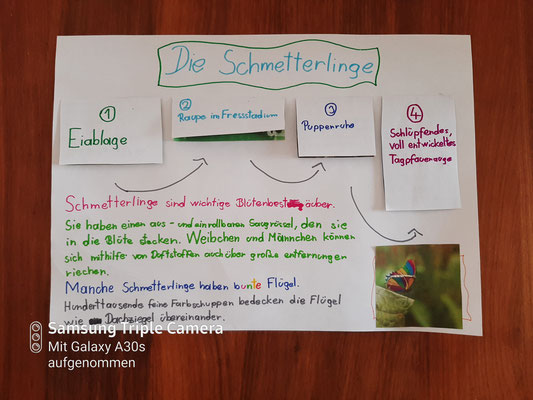 Die Schmetterlinge
①
Eiablage
②
Raupe im Fressstadium
③
Puppenruhe
④
Schlüpfendes,
voll entwickeltes
Tagpfauenauge
Schmetterlinge sind wichtige Blütenbestäuber.
Sie haben einen aus- und einrollbaren Saugrüssel, den sie
in die Blüte stecken. Weibchen und Männchen können
sich mithilfe von Duftstoffen auch über große entfernungen
riechen.
Manche Schmetterlinge haben bunte Flügel.
Hunderttausende feine Farbschuppen bedecken die Flügel
wie Dachziegel übereinander.
Samsung Triple Camera
Mit Galaxy A30s
aufgenommen